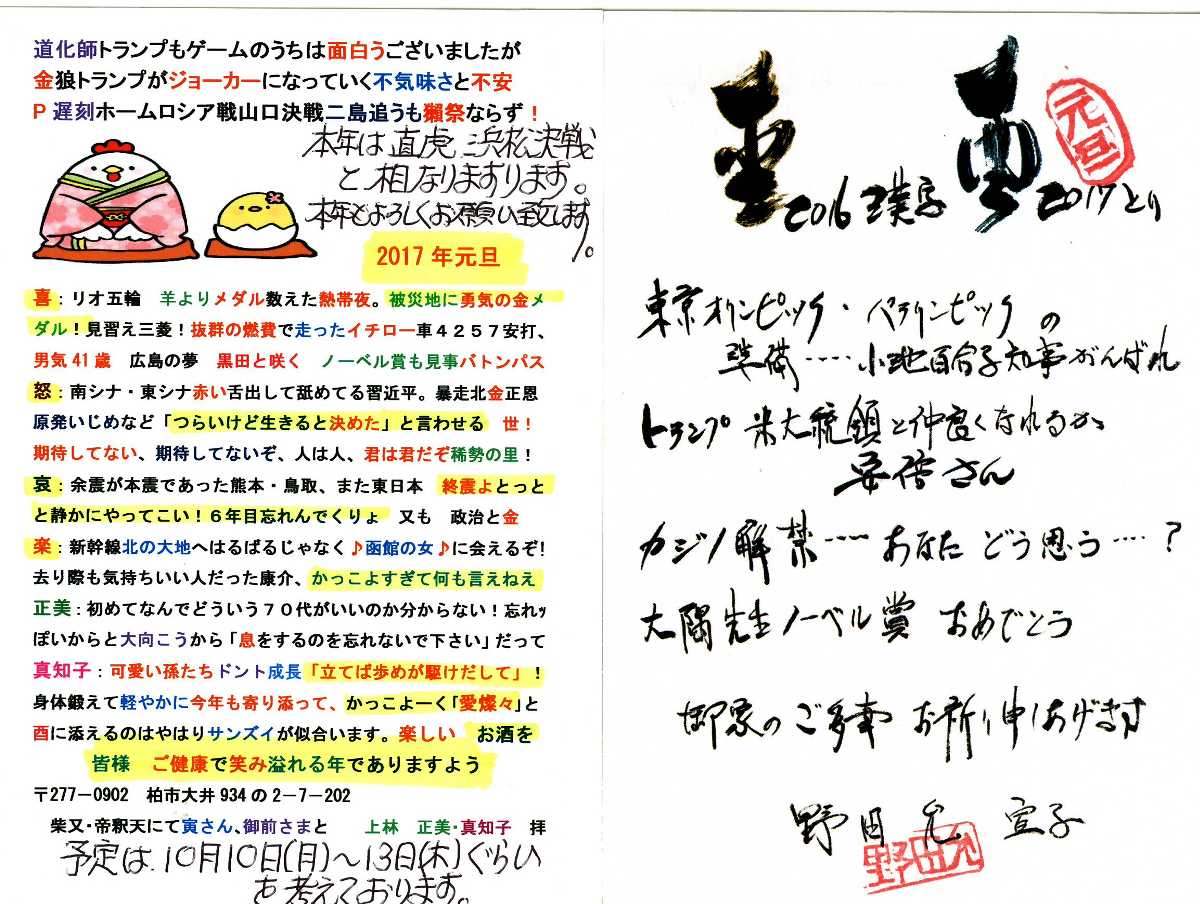 道化師トランプもゲームのうちは面白うございましたが
金狼トランプがジョーカーになっていく不気味さと不安
P遅刻ホームロシア戦山口決戦二島追うも獺祭ならず！
本年は直虎 浜松決戦
と相なりますります。
本年もよろしくお願い致します。
2017年元旦
喜：リオ五輪　羊よりメダル数えた熱帯夜。被災地に勇気の金メ
ダル！見習え三菱！抜群の燃費で走ったイチロー車４２５７安打、
男気41歳　広島の夢　黒田と咲く　ノーベル賞も見事バトンパス
怒：南シナ・東シナ赤い舌出して舐めてる習近平。暴走北金正恩
原発いじめなど「つらいけど生きると決めた」と言わせる　世！
期待してない、期待してないぞ、人は人、君は君だぞ稀勢の里！
哀：余震が本震であった熊本・鳥取、また東日本　終震よとっと
と静かにやってこい！６年目忘れんでくりょ　又も　政治と金
楽：新幹線北の大地へはるばるじゃなく♪函館の女♪に会えるぞ！
去り際も気持ちいい人だった康介、かっこよすぎて何も言えねえ
正美：初めてなんでどういう７０代がいいのか分からない！忘れッ
ぽいからと大向こうから「息をするのを忘れないで下さい」だって
真知子：可愛い孫たちドント成長「立てば歩めが駆けだして」！
身体鍛えて軽やかに今年も寄り添って、かっこよーく「愛燦々」と
酉に添えるのはやはりサンズイが似合います。楽しい　お酒を
皆様　ご健康で笑み溢れる年でありますよう
〒277－0902　柏市大井934の2－7－202
柴又・帝釈天にて寅さん、御前さまと　上林　正美・真知子　拝
予定は 10月10日(月)～13日(木)ぐらい
を考えております。
金 2016 漢字 酉 2017 とり 元旦
東京オリンピック・パラリンピックの
準備････小池百合子知事がんばれ
トランプ 米大統領と仲良くなれるか
安倍さん
カジノ解禁････あなた どう思う････？
大隅先生ノーベル賞 おめでとう
御家のご多幸 お祈り申しあげます
野田 允 宣子
野田允